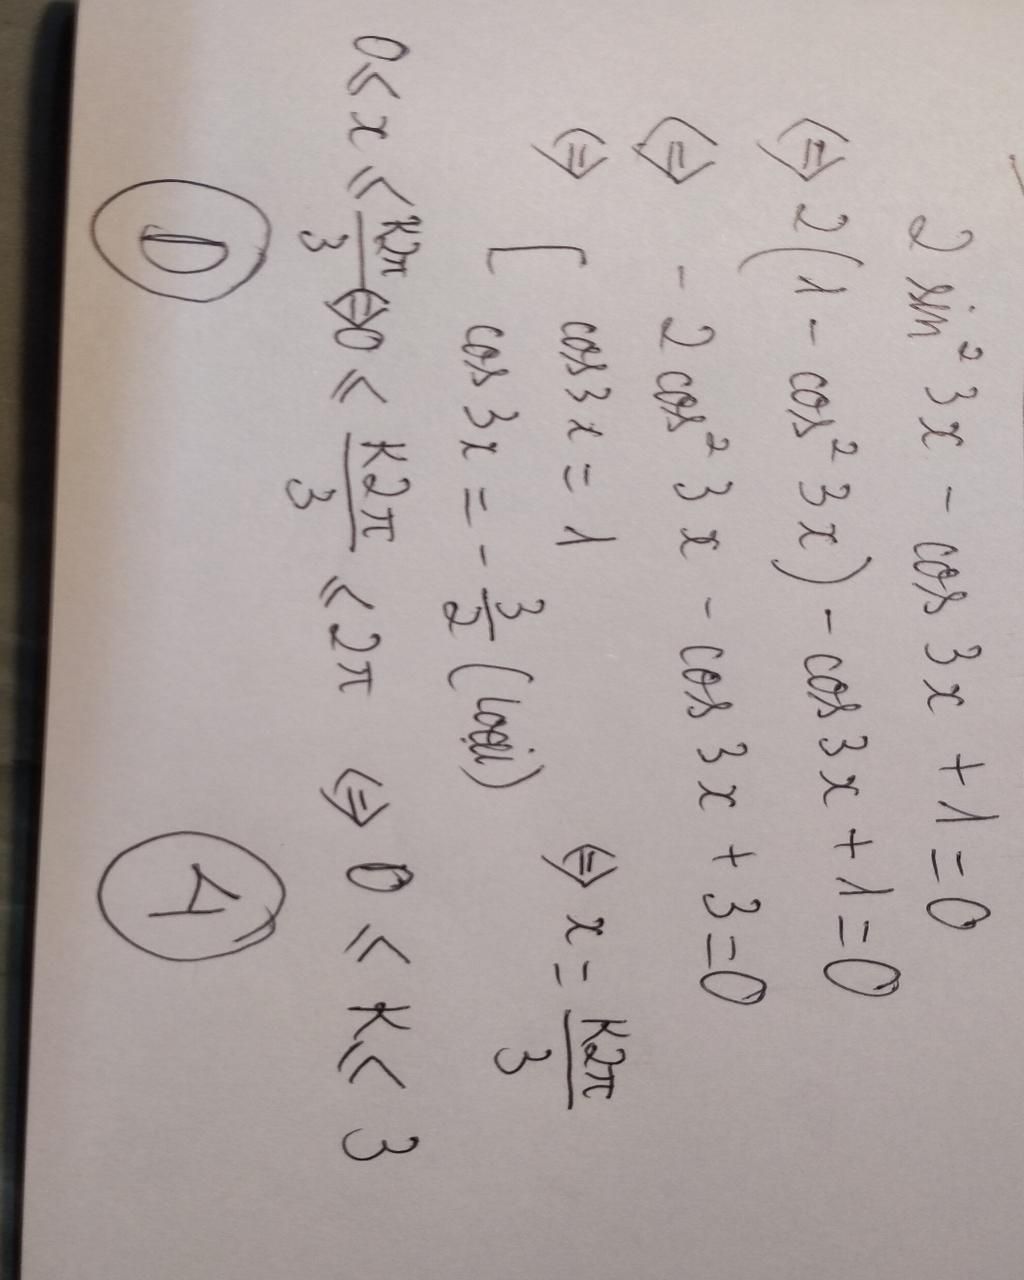 2 sin² 3x - cos 3x + 1 = 0
⇔ 2(1 - cos² 3x) - cos 3x + 1 = 0
⇔ - 2 cos² 3x - cos 3x + 3 = 0
⇔ [ cos 3x = 1 ⇔ x = K2π/3
cos 3x = - 3/2 (loại)
0 ⩽ x ⩽ K2π/3 ⇔ 0 ⩽ K2π/3 ⩽ 2π ⇔ 0 ⩽ K ⩽ 3
D 1